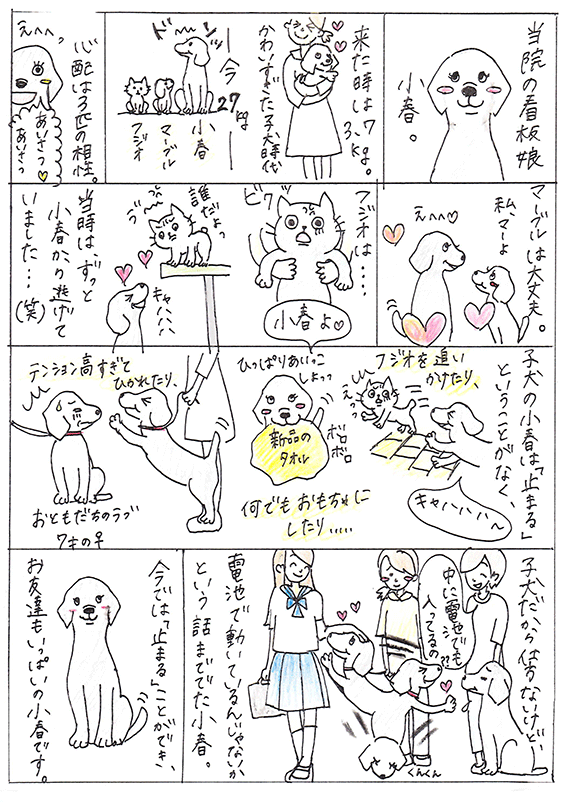 当院の看板娘
小春。
来た時は3.7kg。
かわいすぎた子犬時代
今
27kg
小春
マーブル
フジオ
心配は3匹の相性。
えへへっ
あいさつ
あいさつ
マーブルは大丈夫。
私、マーよ
えへへ♡
フジオは・・・・
ビクッ
小春よ♡
誰だよっ
キャハハハ
当時は、ずっと
小春から逃げて
いました・・・(笑)
子犬の小春は「止まる」
ということがなく、
フジオを追い
かけたり、
えっ
キャハハハ〜
ひっぱりあいっこ
しよっっ
新品の
タオル
ボロボロ
何でもおもちゃに
したり.....
テンション高すぎて
ひかれたり、
おともだちのラブ
7才の♀
子犬だから仕方ないけど、
中に電池でも
入ってるの??
くんくん
電池で動いているんじゃないか
という話まででた小春。
今では「止まる」ことができ、
お友達もいっぱいの小春です。